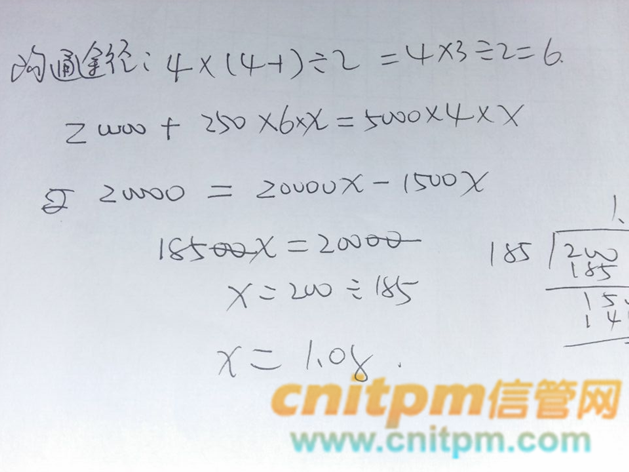 沟通途径：4×(4-1)÷2=4×3÷2=6.
20000+250×6×X=5000×4×X
20000=20000X-1500X
18500X=20000
X=200÷185
X=1.08.
1.
185 200
185
15
14
cnitpm信管网
www.cnitpm.com